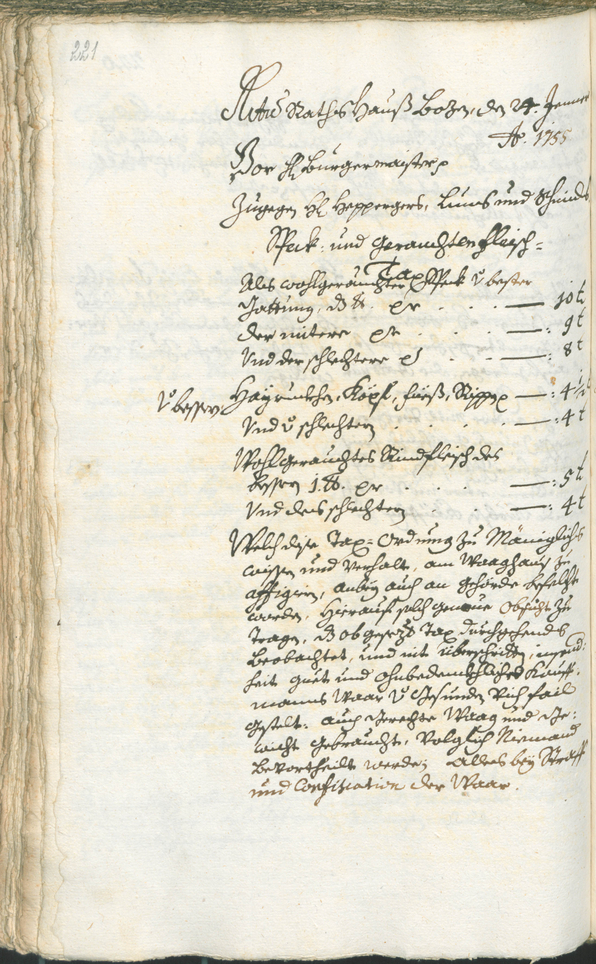 221
Actum Rathshauß Bozen, den 24. Jenner
Ao. 1755
Vor H. burgermaister p
Zugegen HH. Heppergers, Lums und Schmids
Speck- und gerauchten fleisch-
Tax
Als wohlgerauchter Speck v bester
Gattung, d. lb. pr . . . — 10 t
der mitere pr . . . —: 9 t
Vnd der schlechtere pr . . —: 8 t
v bessern Hayruckhen, Köpf, fieß, Rippen —: 4½ t
Vnd v schlechten . . . —: 4 t
Wohlgerauchtes Rindfleisch des
bessern 1. lb. pr . . . —: 5 t
Vnd des schlechten —: 4 t
Welch dise Tax-Ordnung zu Mäniglichs
wissen und Verhalt, am Waaghaus zu
affigiren, anbey auch an behörde befelcht
worden, hierauf solch genaue Obsicht zu
tragen, d. ob gesezte Tax durchgehends
beobachtet, und nit überschritten,
heit guet und ohnbedenkhliches Kauff-
manns Waar v gesundes Vich fail
gestelt, auch gerechte Waag und Ge-
wicht gebraucht, Volglich Niemand
bevortheilt werde; alles bey Straff
und Confiscation der Waar.